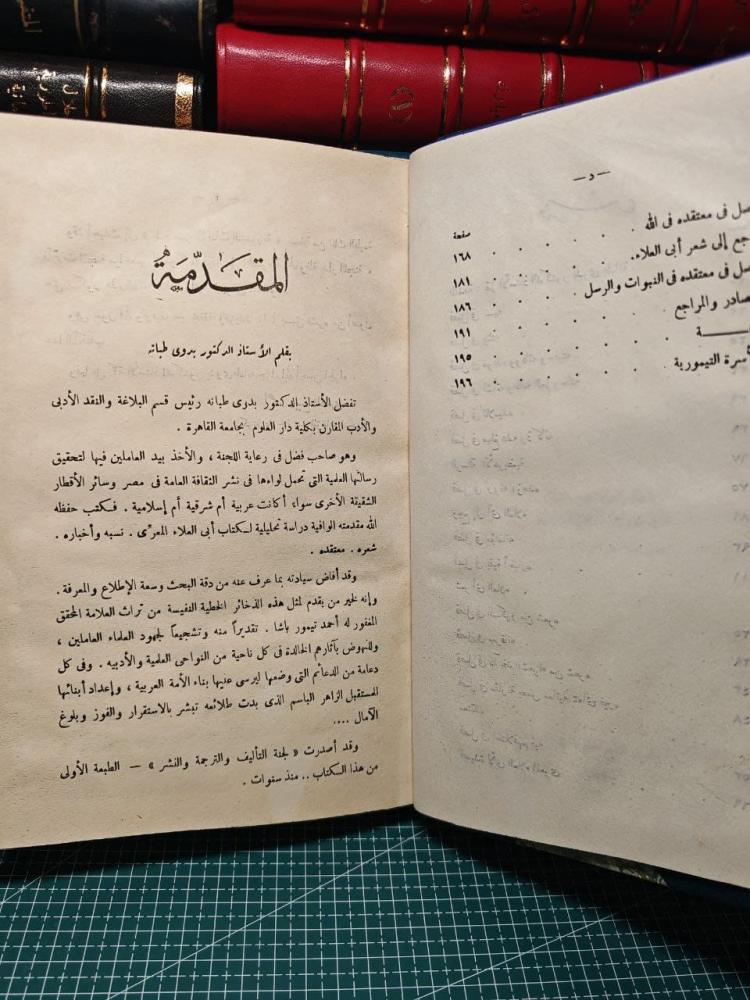 — د —
صفحة
فى معتقده فى الله . . . . ١٦٨
إلى شعر أبى العلاء. . . . . ١٨١
فى معتقده فى النبوات والرسل . . . ١٨٦
والمراجع . . . . ١٩١
. . . . ١٩٥
التيمورية . . . . ١٩٦
المقدّمة
بقلم الأستاذ الدكتور بدوى طبانه
تفضل الأستاذ الدكتور بدوى طبانه رئيس قسم البلاغة والنقد الأدبى
والأدب المقارن بكلية دار العلوم بجامعة القاهرة .
وهو صاحب فضل فى رعاية اللجنة ، والأخذ بيد العاملين فيها لتحقيق
رسالتها العلمية التى تحمل لواءها فى نشر الثقافة العامة فى مصر وسائر الأقطار
الشقيقة الأخرى سواء أكانت عربية أم شرقية أم إسلامية . فكتب حفظه
الله مقدمته الوافية دراسة تحليلية لكتاب أبى العلاء المعرّى . نسبه وأخباره .
شعره . معتقده .
وقد أفاض سيادته بما عرف عنه من دقة البحث وسعة الإطلاع والمعرفة .
وإنه لخير من يقدم لمثل هذه الذخائر الخطية النفيسة من تراث العلامة المحقق
المغفور له أحمد تيمور باشا . تقديراً منه وتشجيعاً لجهود العلماء العاملين ،
وللنهوض بآثارهم الخالدة فى كل ناحية من النواحى العلمية والأدبيه . وفى كل
دعامة من الدعائم التى وضعها ليرسى عليها بناء الأمة العربية ، وإعداد أبنائها
للمستقبل الزاهر الباسم الذى بدت طلائعه تبشر بالاستقرار والفوز وبلوغ
الآمال ....
وقد أصدرت « لجنة التأليف والترجمة والنشر » — الطبعة الأولى
من هذا الكتاب .. منذ سنوات .